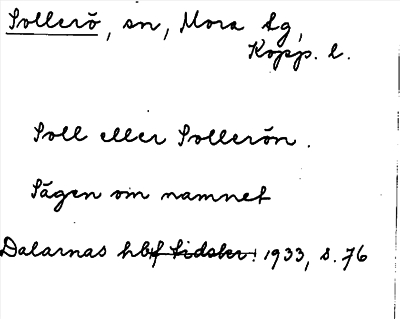 Sollerö, sn, Mora tg,
Kopp. l.
Soll eller Sollerön.
Sägen om namnet
Dalarnas hbf tidskr. 1933, s. 76